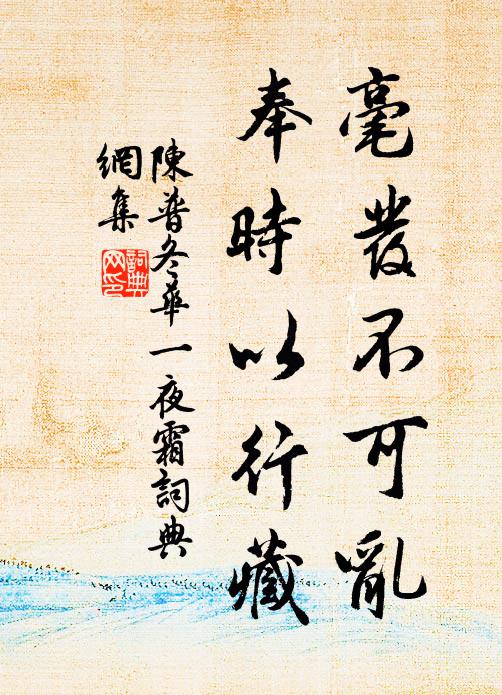 毫發不可亂
奉時以行藏
陳普冬華一夜霜詞典
網集
詞典
网印